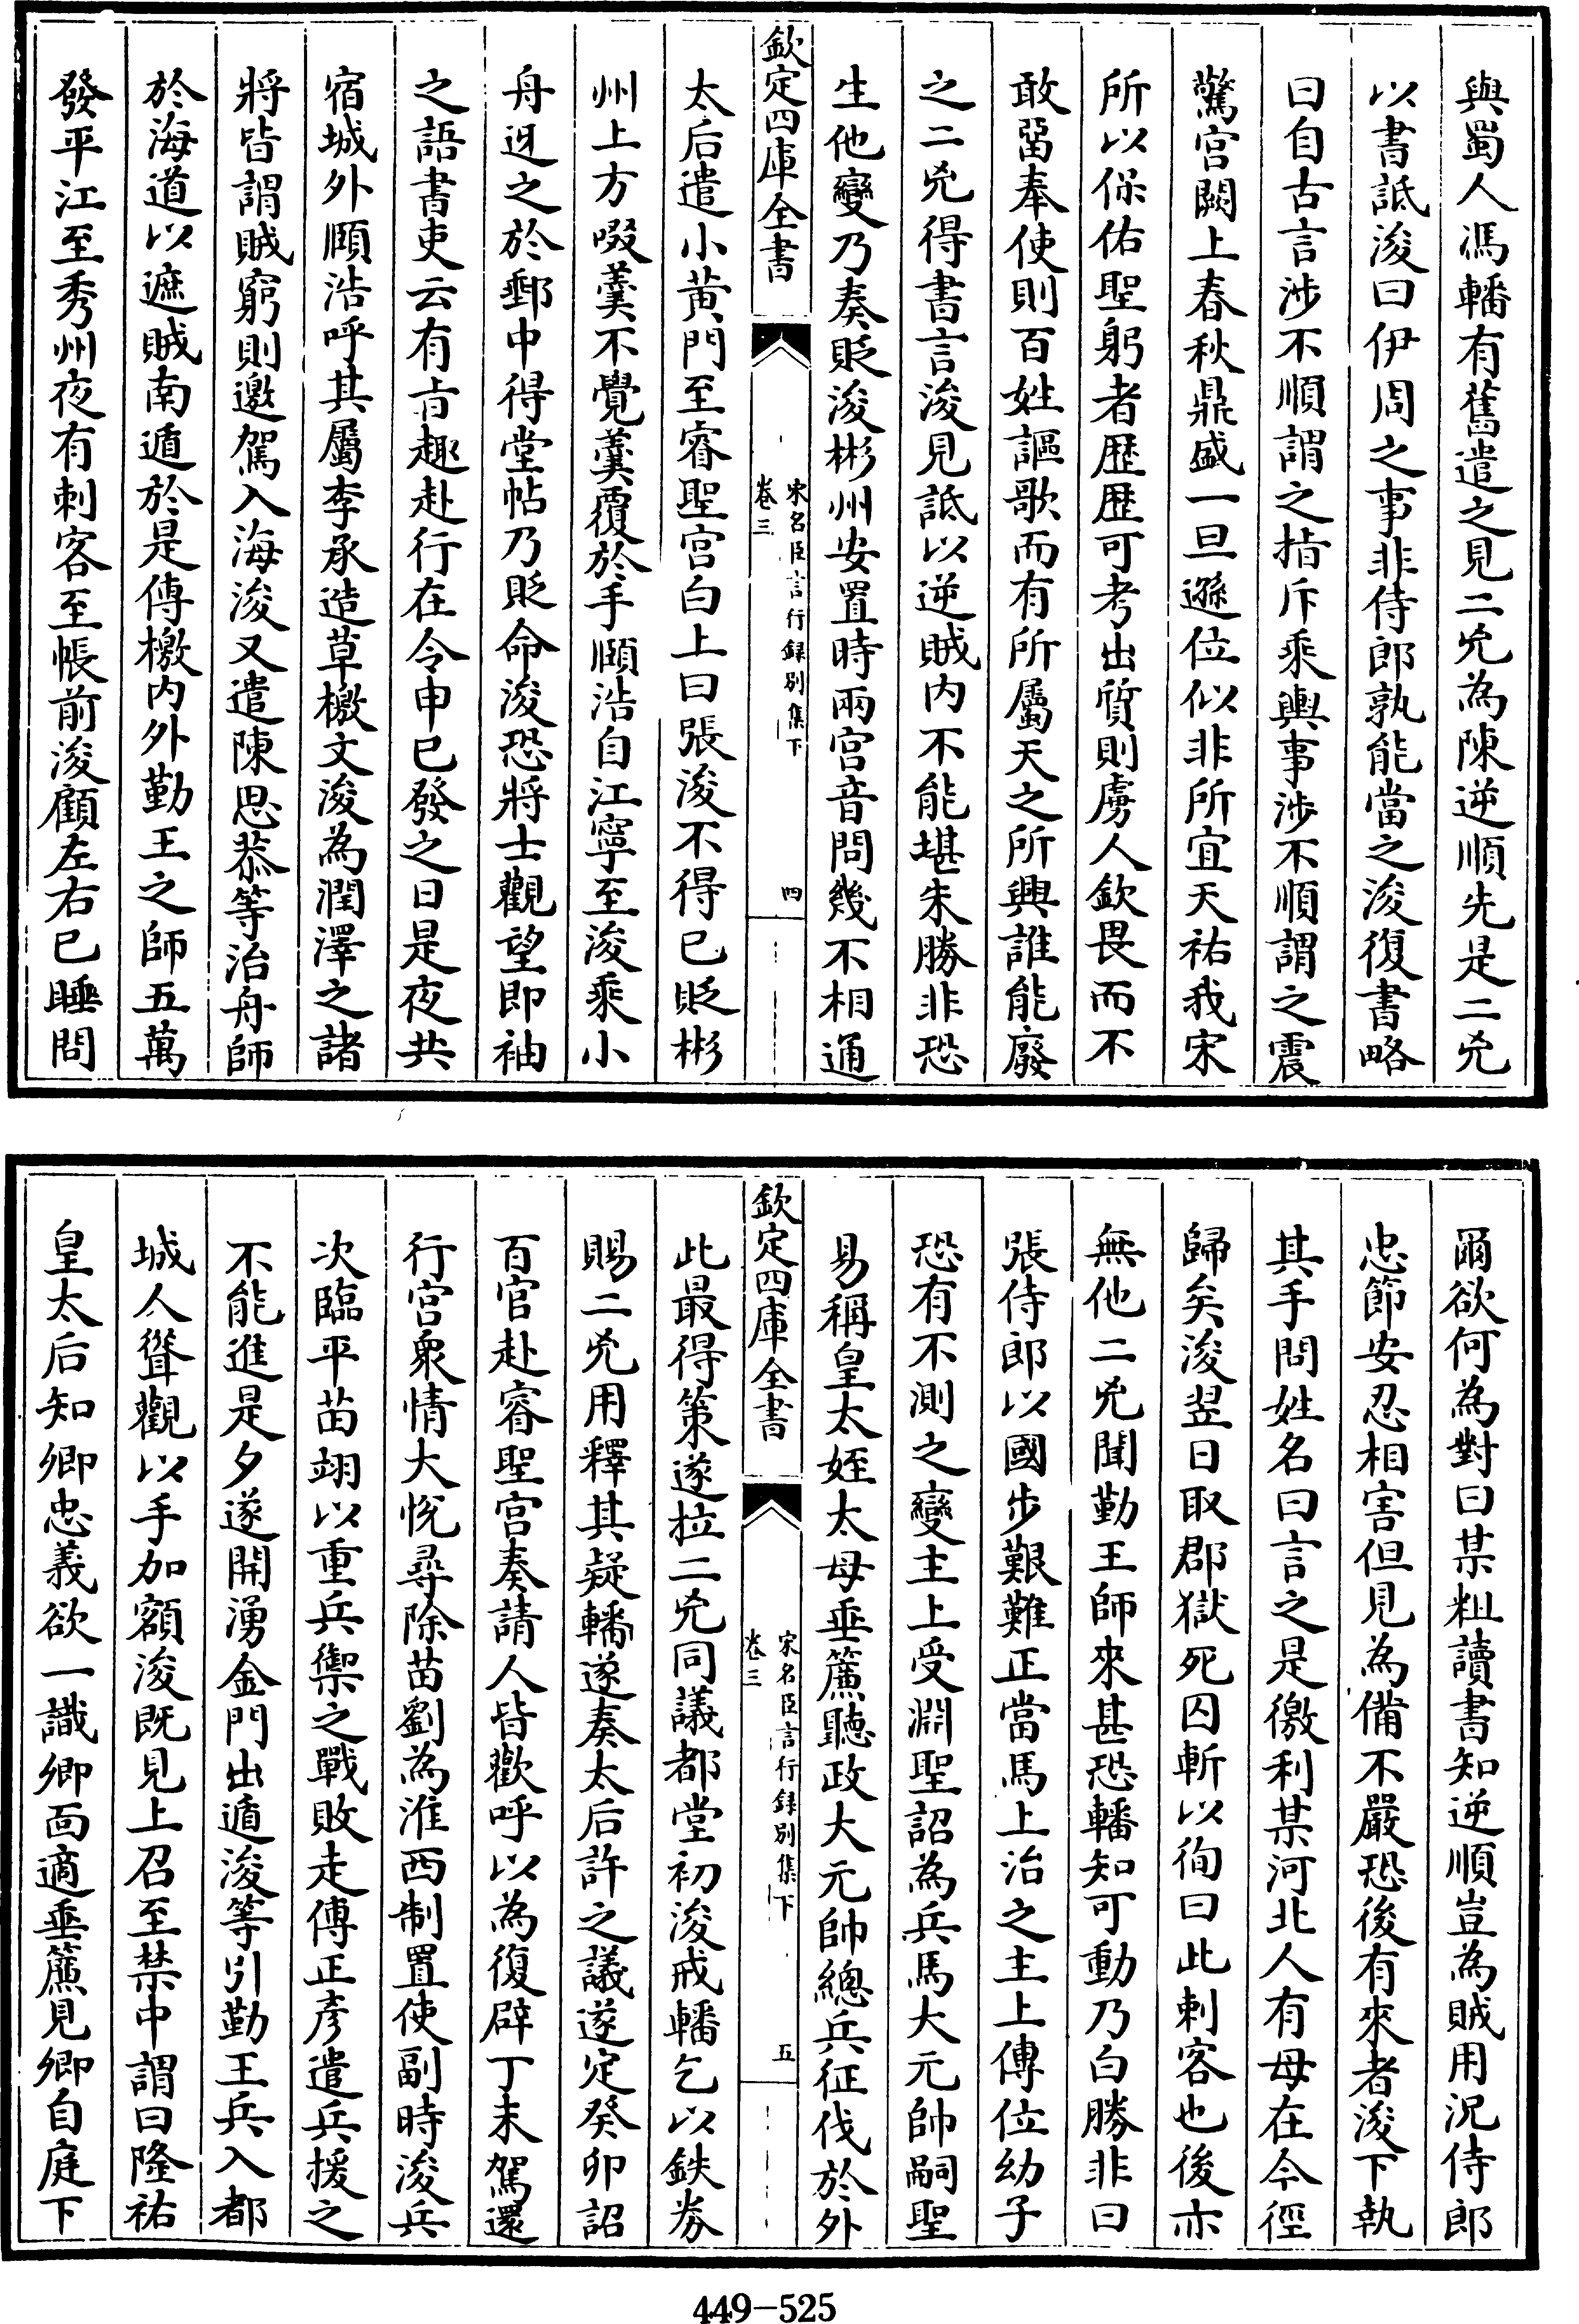 與蜀人馮轓有舊遣之見二兇為陳逆順先是二兇
以書詆浚曰伊周之事非侍郎孰能當之浚復書略
曰自古言涉不順謂之指斥乘輿事涉不順謂之震
驚宫闕上春秋鼎盛一旦遜位似非所宜天祐我宋
所以保佑聖躬者歴歴可考出質則虜人欽畏而不
敢留奉使則百姓謳歌而有所屬天之所興誰能廢
之二兇得書言浚見詆以逆賊内不能堪朱勝非恐
生他變乃奏貶浚彬州安置時兩宫音問幾不相通
欽定四庫全書
宋名臣言行録别集下
卷三
四
太后遣小黄門至睿聖宫白上曰張浚不得已貶彬
州上方啜羹不覺羹覆於手頤浩自江寧至浚乘小
舟迓之於郵中得堂帖乃貶命浚恐將士觀望即袖
之語書吏云有㫖趣赴行在令申已發之日是夜共
宿城外頤浩呼其屬李承造草檄文浚為潤澤之諸
將皆謂賊窮則邀駕入海浚又遣陳思恭等治舟師
於海道以遮賊南遁於是傳檄内外勤王之師五萬
發平江至秀州夜有刺客至帳前浚顧左右已睡問
爾欲何為對曰某粗讀書知逆順豈為賊用況侍郎
忠節安忍相害但見為備不嚴恐後有來者浚下執
其手問姓名曰言之是徼利某河北人有母在今徑
歸矣浚翌日取郡獄死囚斬以徇曰此刺客也後亦
無他二兇聞勤王師來甚恐轓知可動乃白勝非曰
張侍郎以國步艱難正當馬上治之主上傳位幼子
恐有不測之變主上受淵聖詔為兵馬大元帥嗣聖
易稱皇太姪太母垂簾聽政大元帥總兵征伐於外
欽定四庫全書
宋名臣言行録别集下
卷三
五
此最得策遂拉二兇同議都堂初浚戒轓乞以鉄券
賜二兇用釋其疑轓遂奏太后許之議遂定癸卯詔
百官赴睿聖宫奏請人皆歡呼以為復辟丁未駕還
行宫衆情大悅尋除苗劉為淮西制置使副時浚兵
次臨平苗翊以重兵禦之戰敗走傅正彦遣兵援之
不能進是夕遂開湧金門出遁浚等引勤王兵入都
城人聳觀以手加額浚既見上召至禁中謂曰隆祐
皇太后知卿忠義欲一識卿面適垂簾見卿自庭下
449-525